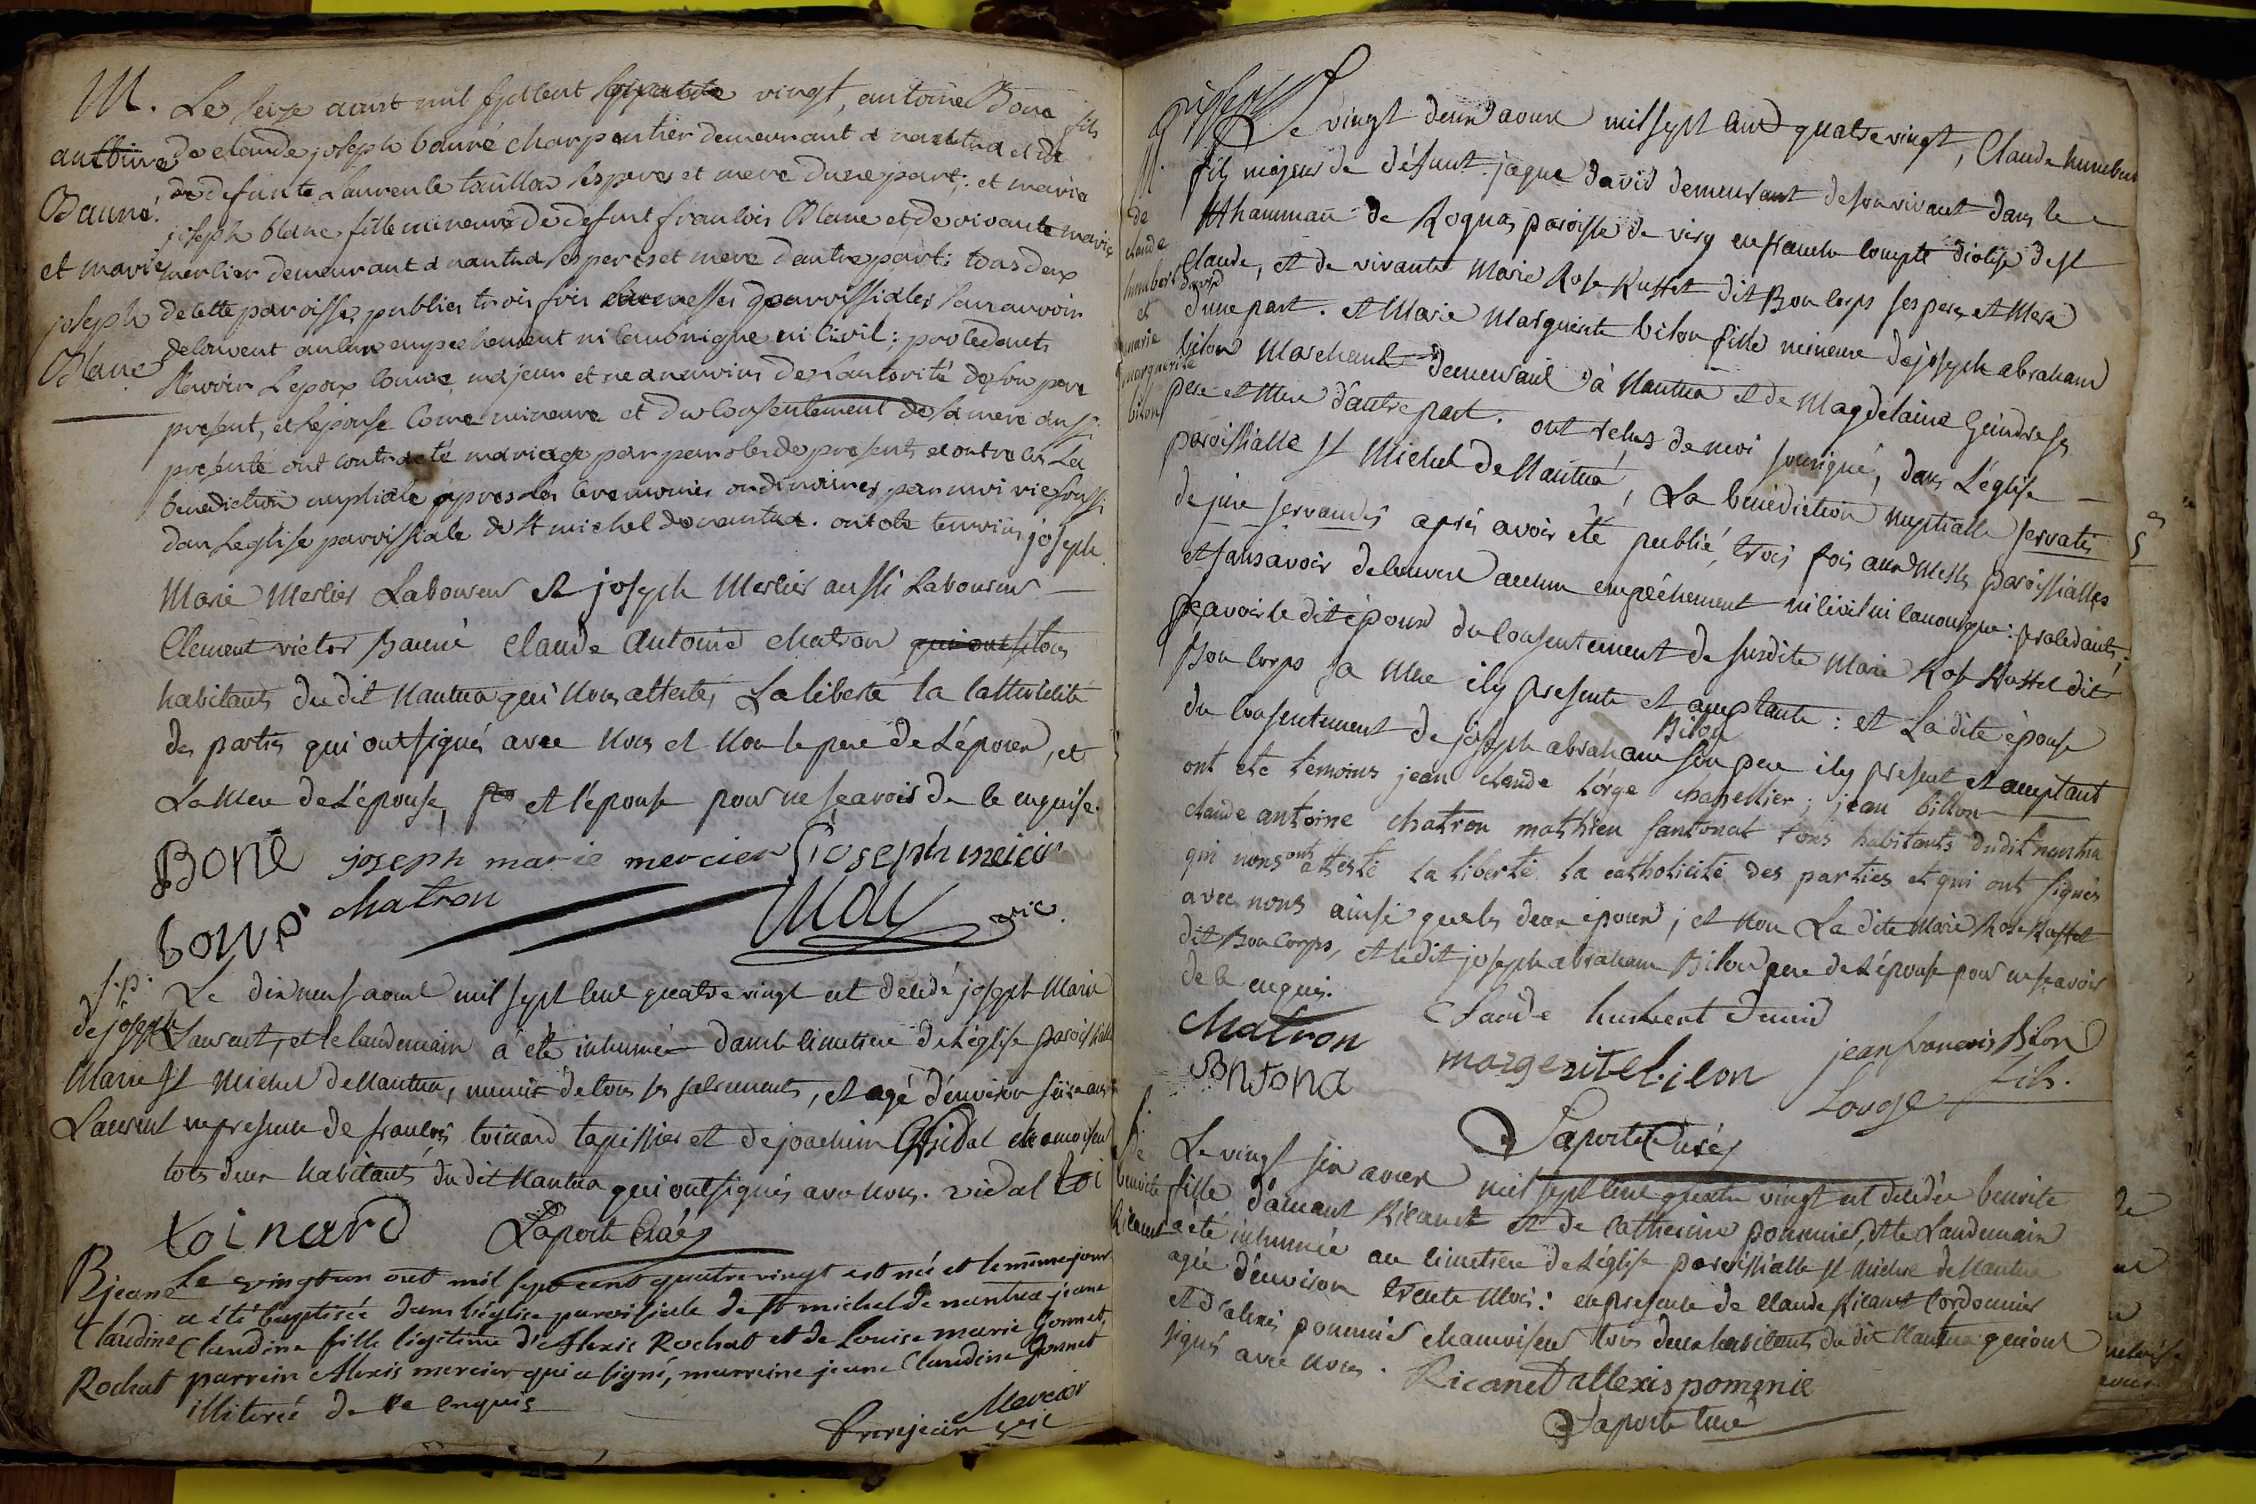 M.
antoine
Bauné.
et marie
joseph
Blanc
Le seize aout mil sept cent quatre vingt, antoine Boné fils
de claude joseph bauné charpentier demeurant a nantua et de
defunte Laurence ses pere et mere d'une part; et marie
joseph blanc fille mineure de defunt francois Blanc et de vivante marie
mercier demeurant a nantua ses pere et mere d'autre part; tous deux
de cette paroisse, publies trois fois es messes paroissiales sans avoir
decouvert aucun empechement ni canonique ni civil; procedants
scavoir l'epoux comme majeur et neanmoins de l'autorité de son pere
present, et l'epouse come mineure et du consentement de sa mere aussi
presente ont contracté mariage par paroles de presents et ont recu la
benediction nuptiale après les ceremonies ordinaires par moi vic soussi
dans l'eglise paroissiale de st michel de nantua. ont ete temoins joseph
Marie Mercier Laboureur et joseph Mercier aussi Laboureur
Clement victor Bauné claude antoine chatron qui ont tous
habitants du dit Nantua qui nous attestes La liberté la catholicité
des parties qui ont signés avec nous et non le pere de L'époux, et
La Mere de L'épouse, et l'épouse pour ne scavoir de ce enquise.
Boné joseph marie mercier joseph meicir
bonné chatron May vic.
s.p.
de joseph
Marie
Laurent
Le dix neuf aout mil sept cent quatre vingt est decedé joseph Marie
Laurent, et le landemain a été inhumée dans le cimetiere de L'église paroissialle
st Michel de Nantua, munit de tous ses sacrements, et agé d'environ seize ans
en presence de francois toinard tapissier et de joachim Vidal chamoiseur
tous deux habitants du dit Nantua qui ont signés avec nous. vidal toi
toinard Laporte Curé
B jeane
Claudine
Rochat
Le vingt un out mil sept cent quatre vingt est née et le même jour
a été baptisée dans l'église paroissiale de st michel de nantua jeane
Claudine fille légitime d'Alexis Rochat et de Louise marie Gonnet,
parrein Alexis mercier qui a signé, marreine jeane Claudine Gonnet
illiterée de ce enquis
Mercier
frerejean vic
M.
de
claude
humbert
david
et
marie
marguerite
bilon
Le vingt deux aoux mil sept cent quatre vingt, Claude humbert
fils majeur de défunt jaque David demeurant de son vivant dans le
hammau de Rogna paroisse de viry en franche compté diocése de st
Claude, et de vivante Marie Rose Ruffet dit Bon corps ses pere et Mere
d'une part. et Marie Marguerite bilon fille mineure de joseph abraham
bilon Marchant demeurant à Nantua et de Magdelaine Geindre ses
pere et Mere d'autre part. ont recus de moi sousigné, dans L'église
paroissialle st Michel de Nantua, La bénédiction nuptialle servatis
de jure servandis aprés avoir été publié, trois fois aux Messes paroissialles
et sans avoir decouvert aucun empêchement ni civil ni canonique: procedants,
scavoir le dit époux du consentement de susdite Marie Rose Ruffet dit
Bon corps sa Mere icy presente et acceptante: et La dite épouse
du consentement de joseph abraham Bilon son pere icy present et acceptant
ont ete temoins jean claude Lorge chapellier; jean billon
claude antoine chatron mathieu santonat tous habitants dudit nantua
qui nous ont attesté la liberté, la catholicité des parties et qui ont signés
avec nous ainsi que les deux époux; et non La dite Marie Rose Ruffet
dit Bon Corps, et le dit joseph abraham Bilon pere de L'épouse pour ne scavoir
de ce enquis.
chatron Claude humbert david
santona margerite bilon jean francois Bilon fils.
Lorge
Laporte Curé
S.
de
benoite
Ricanet
Le vingt six aoux mil sept cent quatre vingt est decedée benoite
fille d'amant Ricanet et de Catherine pommier, et le Landemain
a été inhumée au cimetiere de L'église paroissialle st Michel de Nantua
agée d'environ trente Mois: en presence de Claude Ricanet Cordonnier
et d'alexis pommier chamoiseur tous deux habitants du dit Nantua qui ont
signés avec nous. Ricanet allexis pommie
Laporte Curé